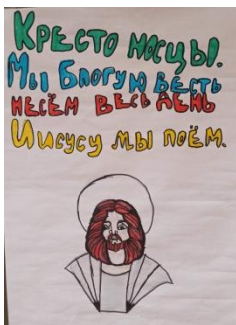 Кресто носцы.
Мы Благую весть
несём весь день
Иисусу мы поём.